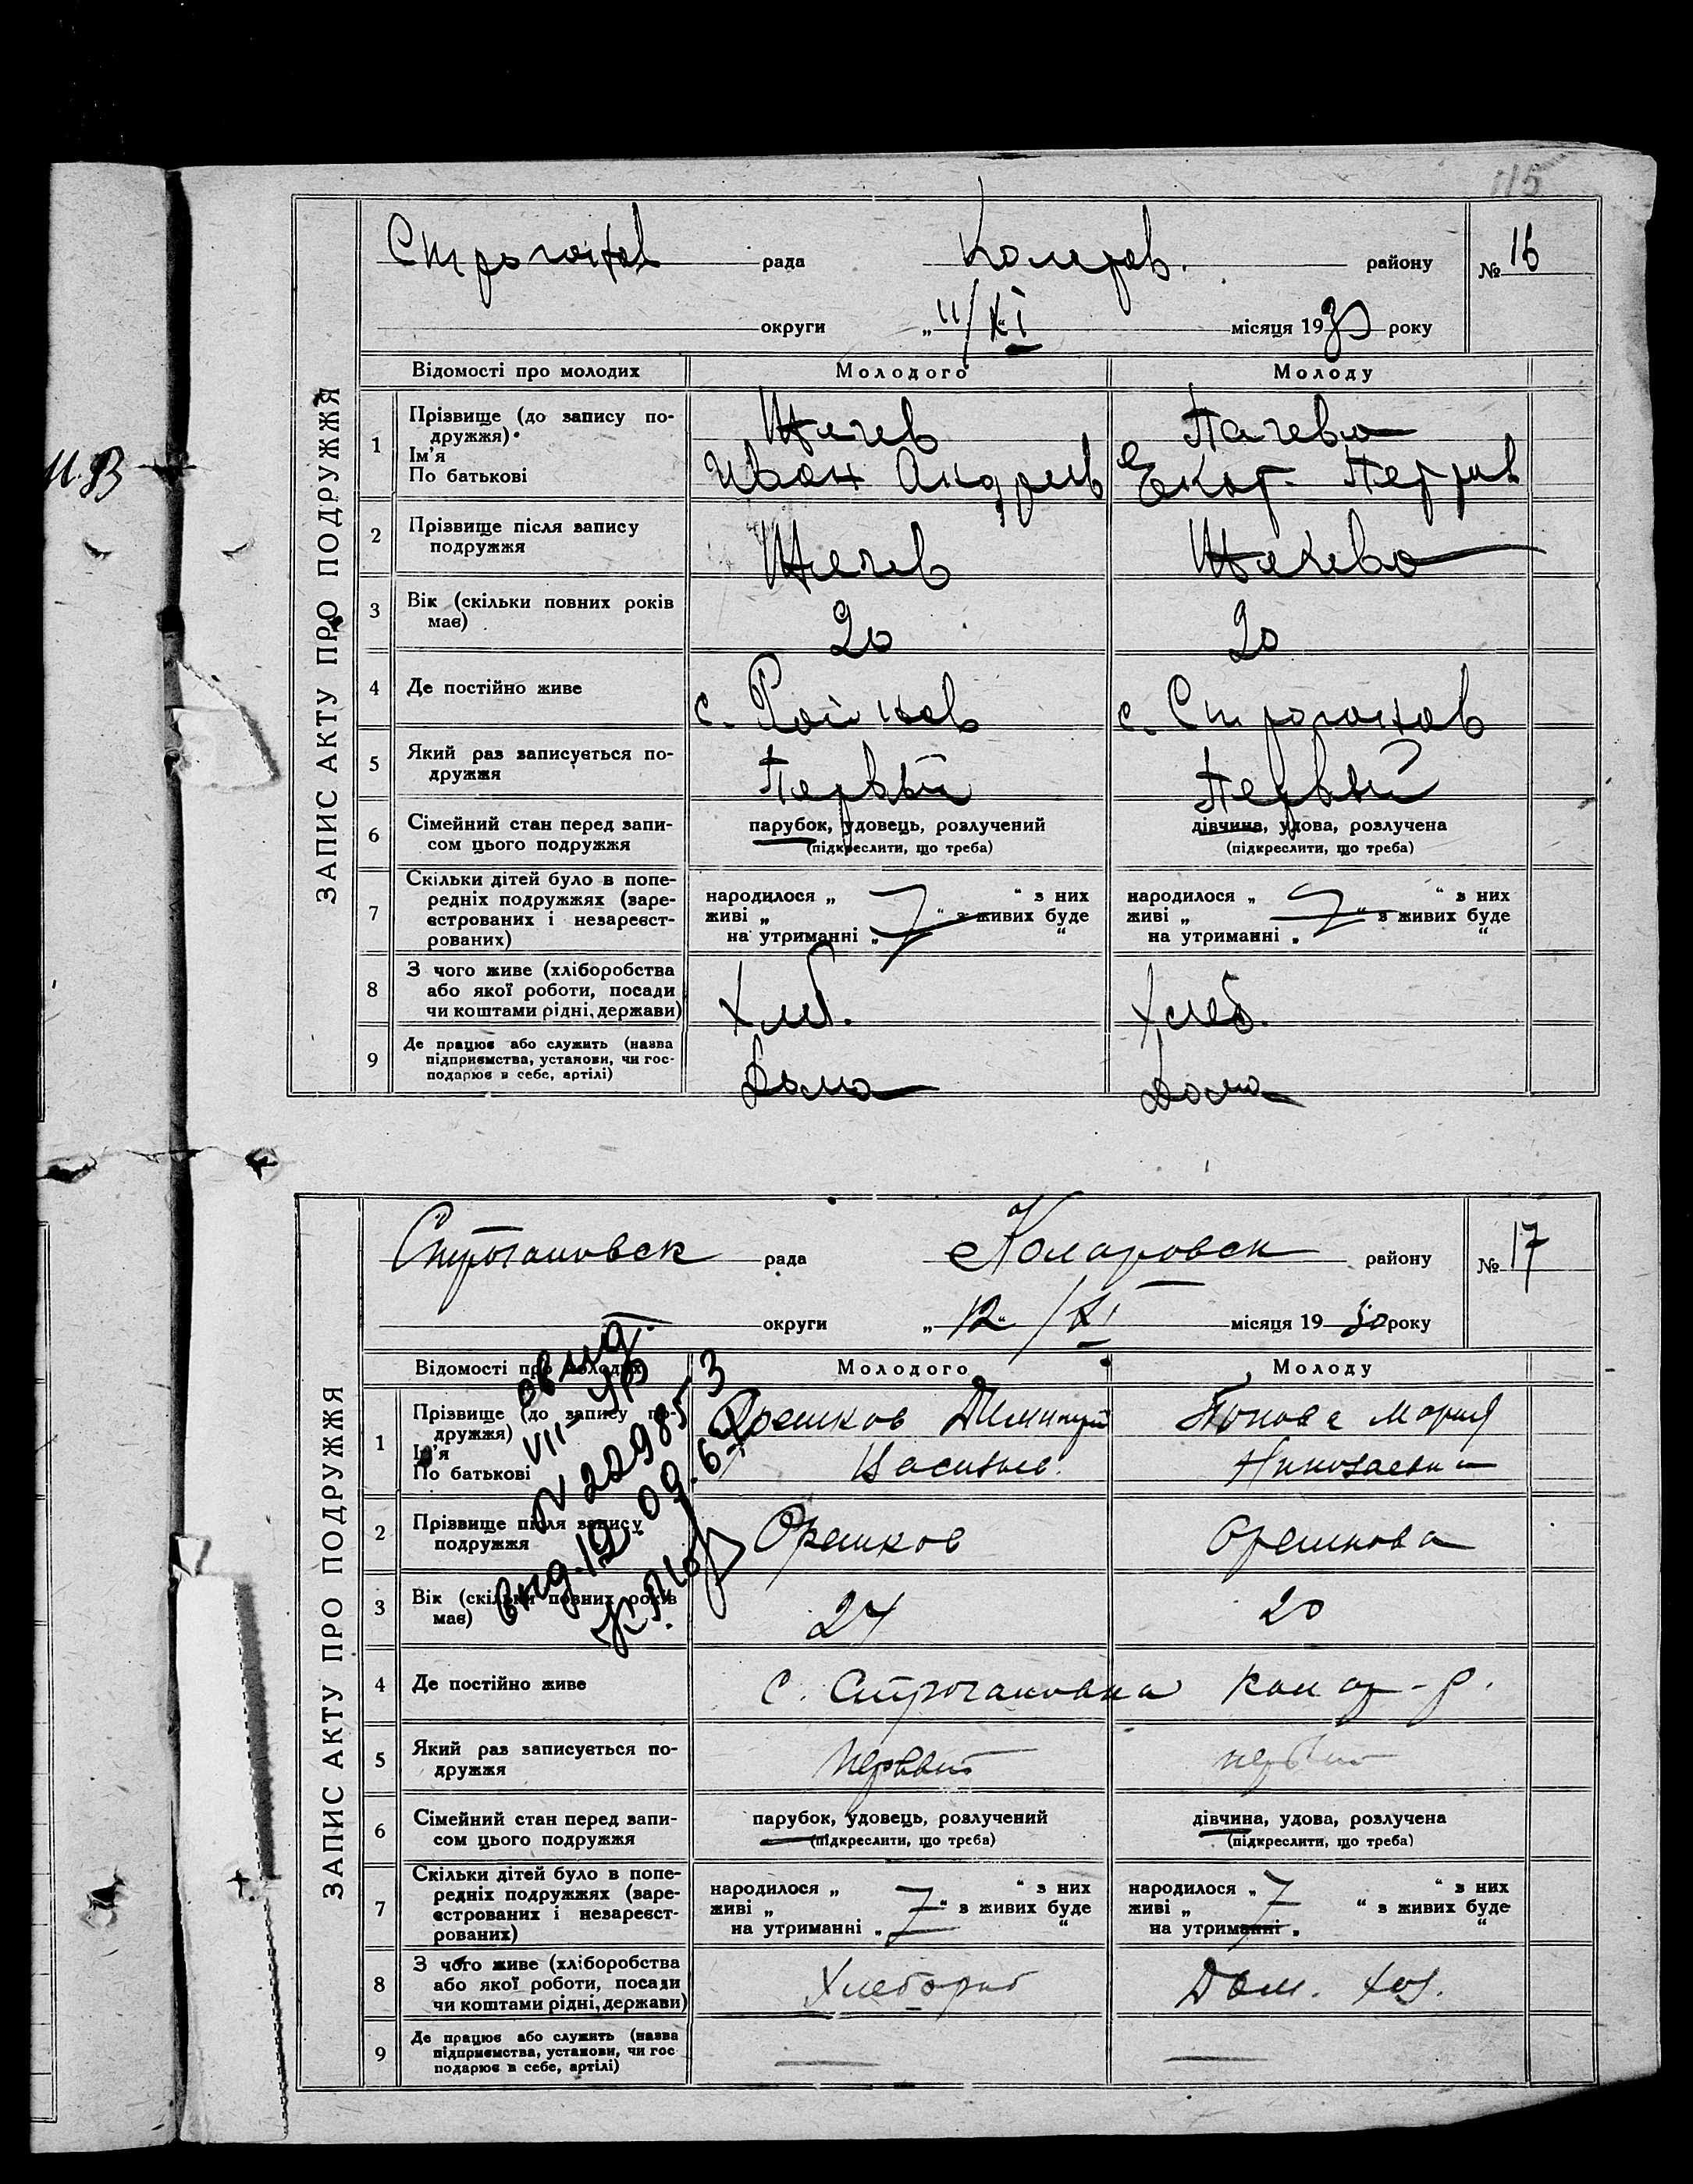 115
Строганов рада Коларов. району № 16
округи „11/XI“ місяця 1930 року
ЗАПИС АКТУ ПРО ПОДРУЖЖЯ
Відомості про молодих Молодого Молоду
1 Прізвище (до запису по-
дружжя)
Ім'я
По батькові
Иван Андреев Екат. Петров
2 Прізвище після запису
подружжя
3 Вік (скільки повних років
має)
20 20
4 Де постійно живе с. Райнов с. Строганов
5 Який раз записується по-
дружжя
Первый Первый
6 Сімейний стан перед запи-
сом цього подружжя
парубок, удовець, розлучений дівчина, удова, розлучена
(підкреслити, що треба) (підкреслити, що треба)
7 Скільки дітей було в попе-
редніх подружжях (заре-
єстрованих і незареєст-
рованих)
народилося „ “ з них народилося „ “ з них
живі „ “ з живих буде живі „ “ з живих буде
на утриманні „ “ на утриманні „ “
8 З чого живе (хліборобства
або якої роботи, посади
чи коштами рідні, держави)
Хлеб. Хлеб.
9 Де працює або служить (назва
підприємства, установи, чи гос-
подарює в себе, артілі)
Дома Дома
Строгановск рада Коларовск району № 17
округи „12“/XI місяця 1930 року
ЗАПИС АКТУ ПРО ПОДРУЖЖЯ
Відомості про молодих Молодого Молоду
1 Прізвище (до запису по-
дружжя)
Ім'я
По батькові
Орешков Димитрий Попова Мария
Васильев. Николаевна
2 Прізвище після запису
подружжя
Орешков Орешкова
3 Вік (скільки повних років
має)
24 20
4 Де постійно живе с. Строгановка Колар-р.
5 Який раз записується по-
дружжя
первый первый
6 Сімейний стан перед запи-
сом цього подружжя
парубок, удовець, розлучений дівчина, удова, розлучена
(підкреслити, що треба) (підкреслити, що треба)
7 Скільки дітей було в попе-
редніх подружжях (заре-
єстрованих і незареєст-
рованих)
народилося „ “ з них народилося „ “ з них
живі „ “ з живих буде живі „ “ з живих буде
на утриманні „ “ на утриманні „ “
8 З чого живе (хліборобства
або якої роботи, посади
чи коштами рідні, держави)
Хлебороб Дом. хоз.
9 Де працює або служить (назва
підприємства, установи, чи гос
подарює в себе, артілі)
VII-УР
N 229853